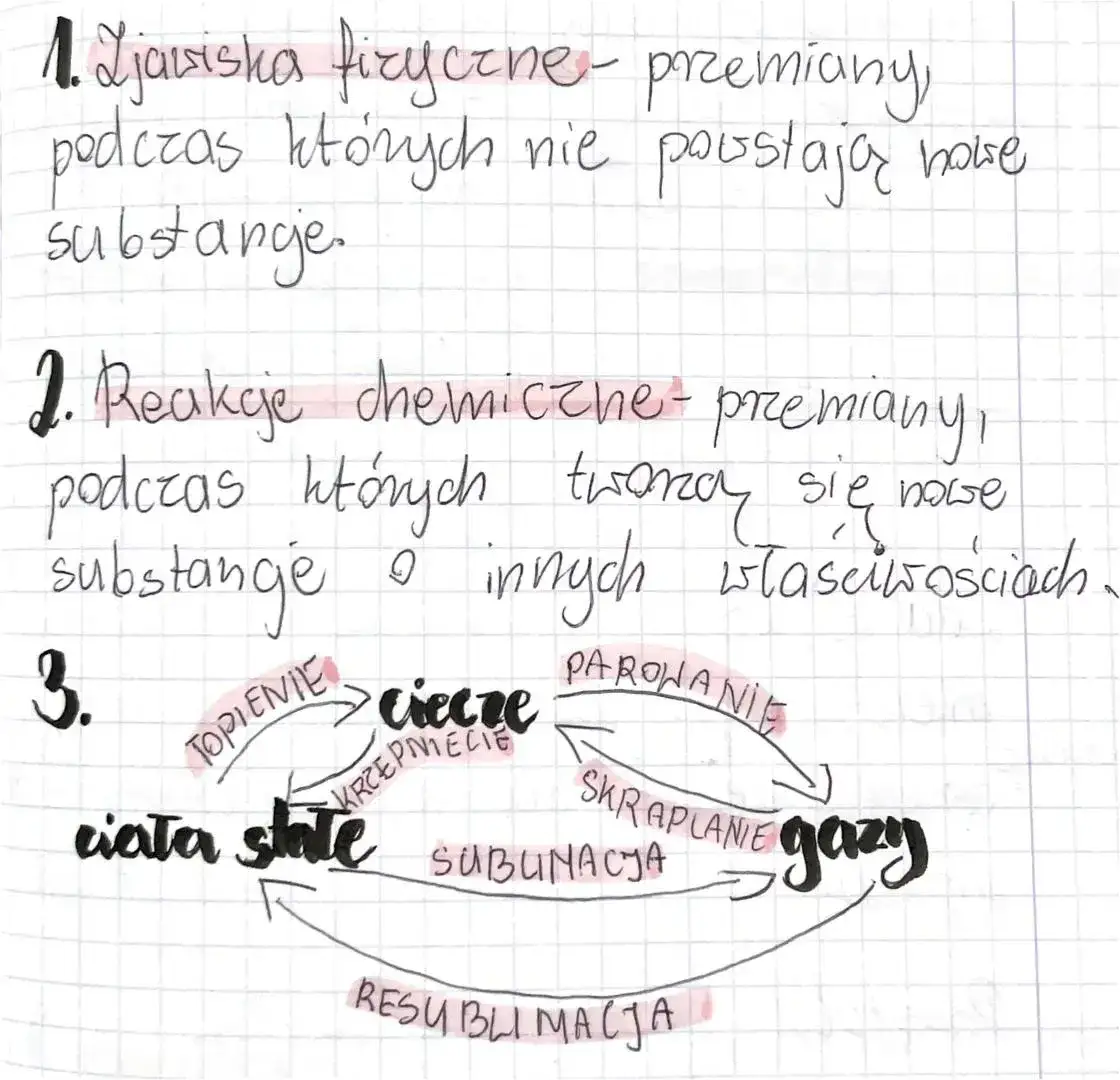 1. Zjawiska fizyczne - przemiany,
podczas których nie powstają nowe
substancje.
2. Reakcje chemiczne - przemiany,
podczas których tworzą się nowe
substancje o innych właściwościach.
3.
TOPIENIE
ciecze
PAROWANIE
KRZEPNIĘCIE
SKRAPLANIE
ciała stałe
SUBLIMACJA
gazy
RESUBLIMACJA